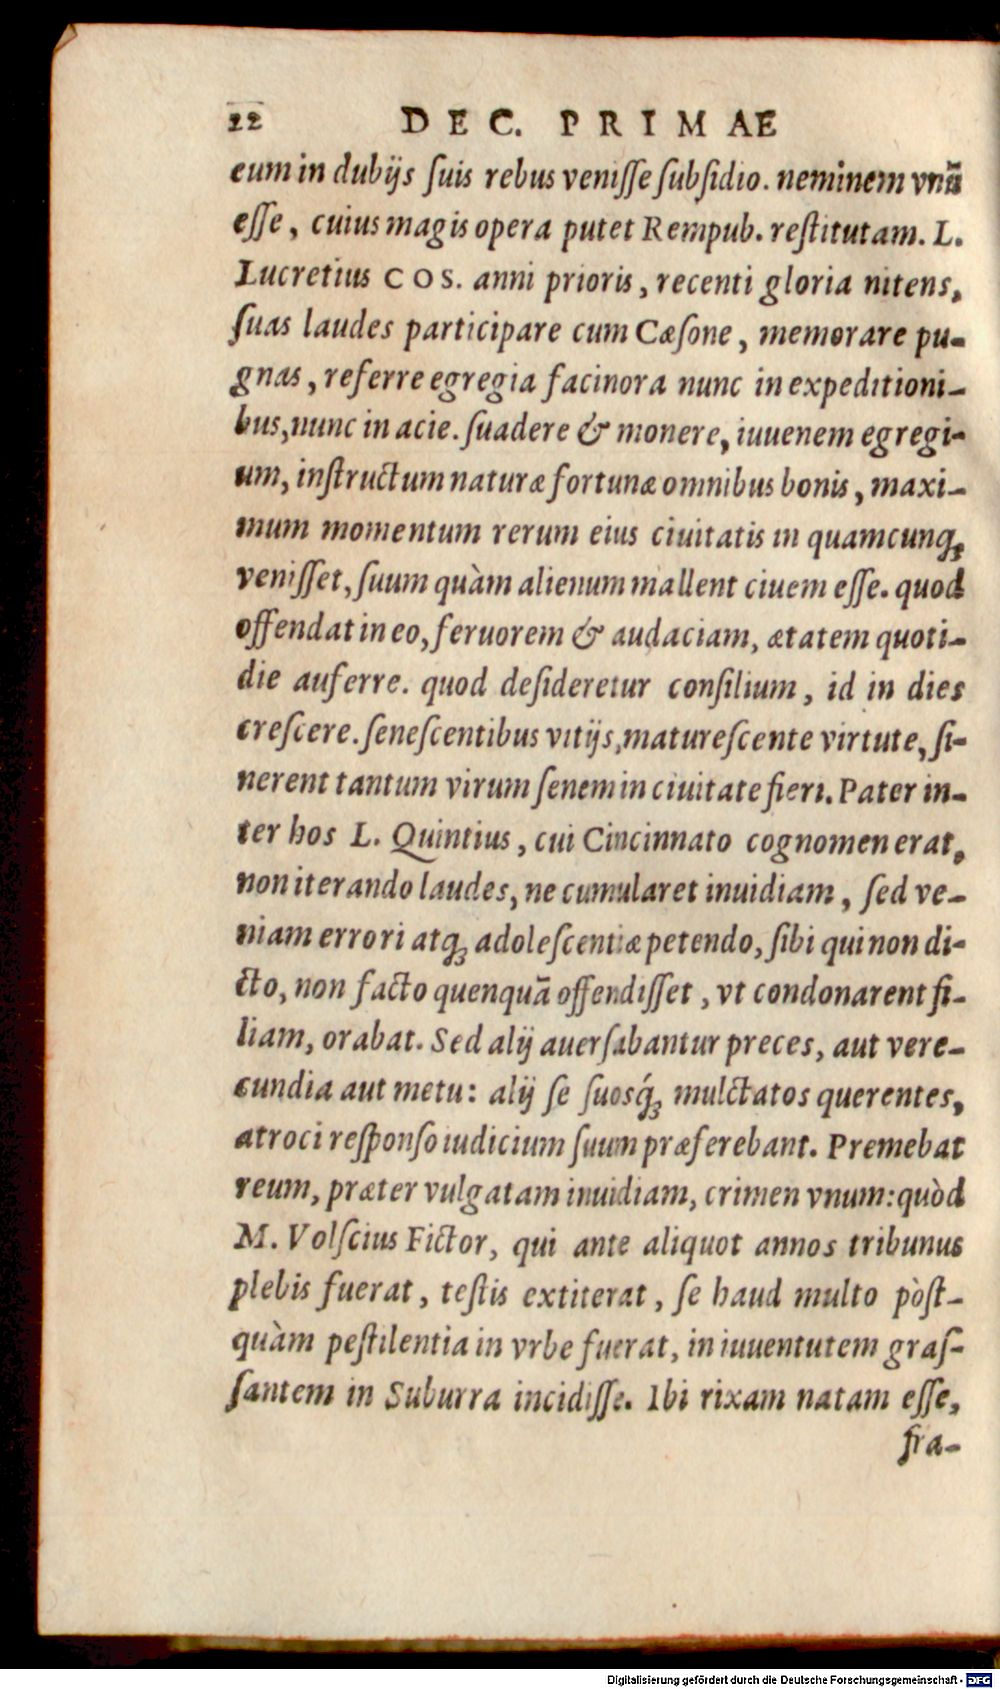 22 DEC. PRIMAE
eum in dubijs ſuis rebus veniſſe ſubſidio. neminem vnũ
eſſe, cuius magis opera putet Rempub. reſtitutam. L.
Lucretius COS. anni prioris, recenti gloria nitens,
ſuas laudes participare cum Cæſone, memorare pu-
gnas, referre egregia facinora nunc in expeditioni-
bus, nunc in acie. ſuadere & monere, iuuenem egregi-
um, inſtructum naturæ fortunæ omnibus bonis, maxi-
mum momentum rerum eius ciuitatis in quamcunq;
veniſſet, ſuum quàm alienum mallent ciuem eſſe. quod
offendat in eo, feruorem & audaciam, ætatem quoti-
die auferre. quod deſideretur conſilium, id in dies
creſcere. ſeneſcentibus vitijs, matureſcente virtute, ſi-
nerent tantum virum ſenem in ciuitate fieri. Pater in-
ter hos L. Quintius, cui Cincinnato cognomen erat,
non iterando laudes, ne cumularet inuidiam, ſed ve-
niam errori atq; adoleſcentiæ petendo, ſibi qui non di-
cto, non facto quenquã offendiſſet, vt condonarent fi-
liam, orabat. Sed alij auerſabantur preces, aut vere-
cundia aut metu: alij ſe ſuosq́; mulctatos querentes,
atroci reſponſo iudicium ſuum præferebant. Premebat
reum, præter vulgatam inuidiam, crimen vnum: quòd
M. Volſcius Fictor, qui ante aliquot annos tribunus
plebis fuerat, teſtis extiterat, ſe haud multo pòſt-
quàm peſtilentia in vrbe fuerat, in iuuentutem graſ-
ſantem in Suburra incidiſſe. Ibi rixam natam eſſe,
fra-
Digitalisierung gefördert durch die Deutsche Forschungsgemeinschaft - DFG